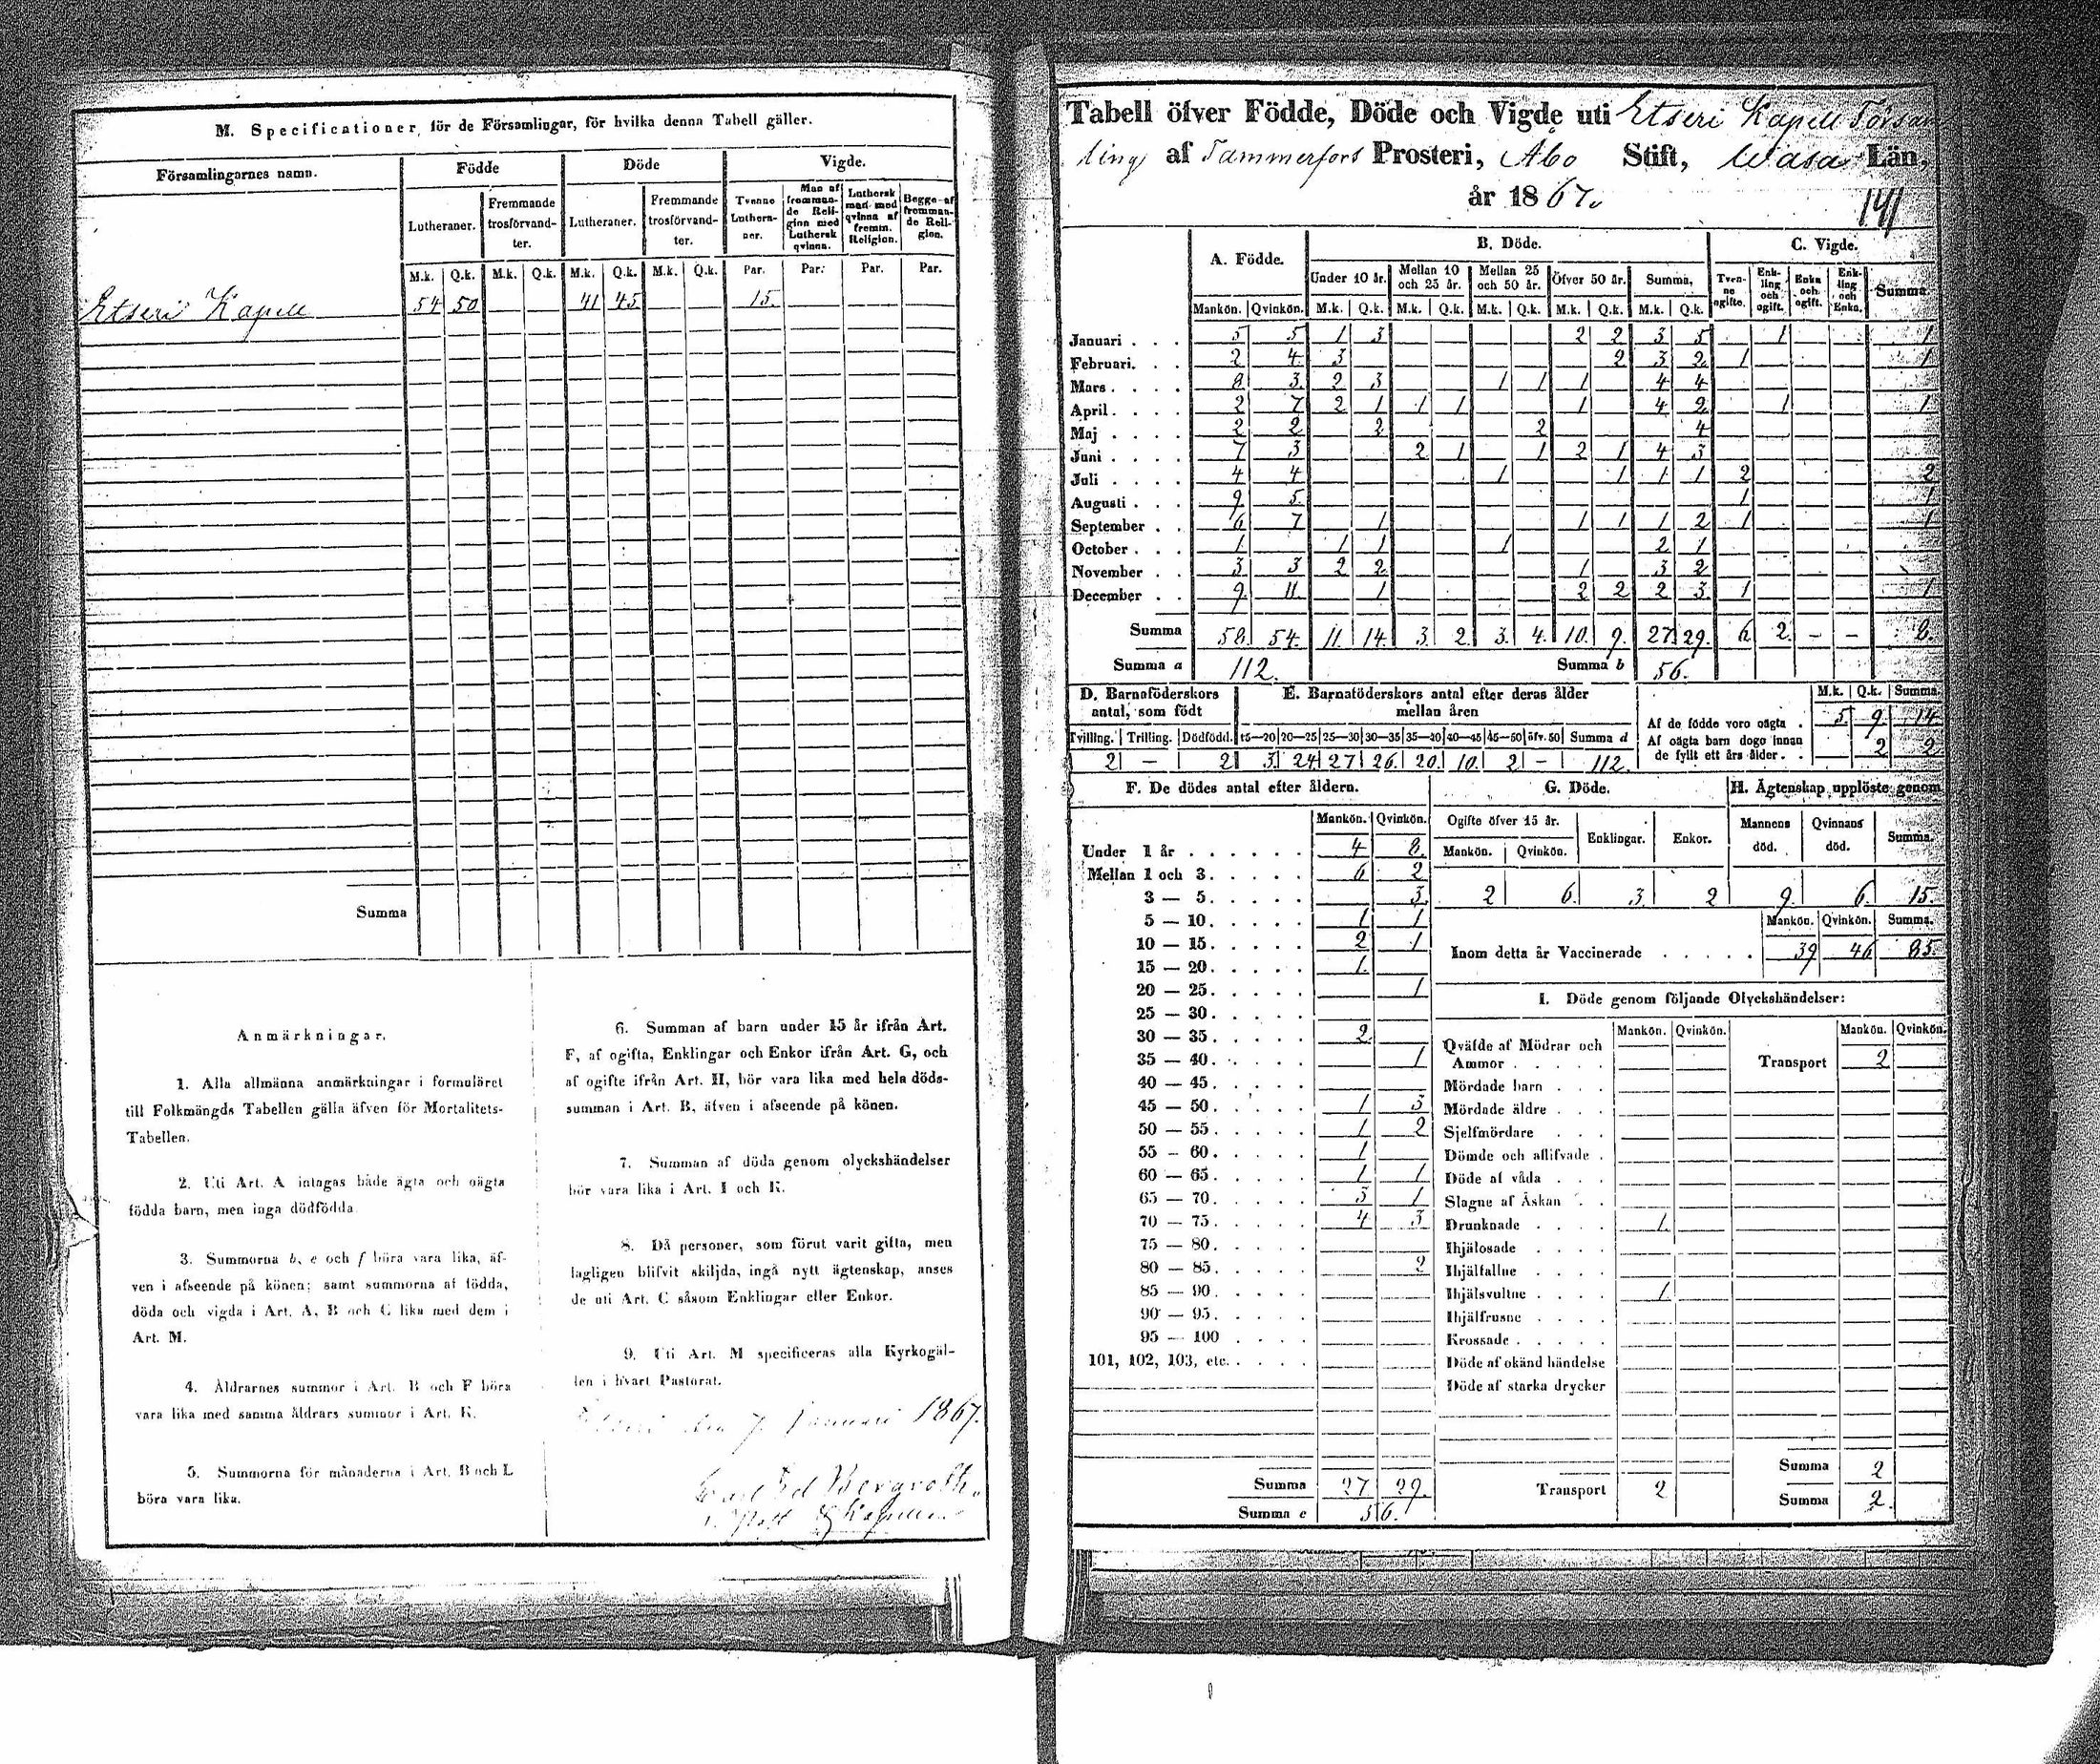 M. Specificationer för de Församlingar, för hvilka denna Tabell gäller.
Församlingarnes namn. Födde Döde Vigde.
Lutheraner. Fremmande trosförvandter. Lutheraner. Fremmande trosförvandter. Tvenne Lutheraner. Man af fremmande Religion med Luthersk qvinna. Luthersk man med qvinna af fremm. Religion. Begge af fremmande Religion.
M.k. Q.k. M.k. Q.k. M.k. Q.k. M.k. Q.k. Par. Par. Par. Par.
Etseri Kapell 54 50 41 45 15.
Summa
Anmärkningar.
1. Alla allmänna anmärkningar i formuläret
till Folkmängds Tabellen gälla äfven för Mortalitets-
Tabellen.
2. Uti Art. A intagas både ägta och oägta
födda barn, men inga dödfödda
3. Summorna b, e och f böra vara lika, äf-
ven i afseende på könen; samt summorna af födda,
döda och vigda i Art. A, B och C lika med dem i
Art. M.
4. Åldrarnes summor i Art. B och F böra
vara lika med samma åldrars summor i Art. K.
5. Summorna för månaderna i Art. B och L
böra vara lika.
6. Summan af barn under 15 år ifrån Art.
F, af ogifta, Enklingar och Enkor ifrån Art. G, och
af ogifte ifrån Art. H, bör vara lika med hela döds-
summan i Art. B, äfven i afseende på könen.
7. Summan af döda genom olyckshändelser
bör vara lika i Art. I och K.
8. Då personer, som förut varit gifta, men
lagligen blifvit skiljda, ingå nytt ägtenskap, anses
de uti Art. C såsom Enklingar eller Enkor.
9. Uti Art. M specificeras alla Kyrkogäl-
len i hvart Pastorat.
den 7 Januari 1867.
Carl Ed Bergroth.
Tabell öfver Födde, Döde och Vigde uti Etseri Kapell Församl
ling af Tammerfors Prosteri, Åbo Stift, Wasa Län,
år 1867.
141
A. Födde. B. Döde. C. Vigde.
Under 10 år. Mellan 10 och 25 år. Mellan 25 och 50 år. Öfver 50 år. Summa. Tvenne ogifte. Enkling och ogift. Enka och ogift. Enkling och Enka. Summa.
Mankön. Qvinkön. M.k. Q.k. M.k. Q.k. M.k. Q.k. M.k. Q.k. M.k. Q.k.
Januari . . . 5 5 1 3 2 2 3 5 1 1
Februari. . . 2 4 3 2 3 2 1 1
Mars . . . . 8 3 2 3 1 1 1 4 4
April . . . . 2 7 2 1 1 1 1 4 2 1 1
Maj . . . . 2 2 2 2 4
Juni . . . . 7 3 2 1 1 2 1 4 3
Juli . . . . 4 4 1 1 1 1 2 2
Augusti . . . 9 5 1 1
September . . 6 7 1 1 1 1 2 1 1
October . . . 1 1 1 1 2 1
November . . 3 3 2 2 1 3 2
December . . 9 11 1 2 2 2 3 1 1
Summa 58. 54. 11. 14. 3 2. 3. 4. 10. 9. 27. 29. 6 2. – – 8.
Summa a 112. Summa b 56.
D. Barnaföderskors antal, som födt
E. Barnaföderskors antal efter deras ålder mellan åren
M.k. Q.k. Summa.
Tvilling. Trilling. Dödfödd. 15—20 20—25 25—30 30—35 35—40 40—45 45—50 öfv. 50 Summa d
2 – 2 3 24 27 26. 20. 10. 2 – 112.
Af de födde voro oägta . 5 9. 14
Af oägta barn dogo innan
de fyllt ett års ålder . . 2 2
F. De dödes antal efter åldern.
Mankön. Qvinkön.
Under 1 år . . . . . . 4 8.
Mellan 1 och 3. . . . . 6 2
3 — 5. . . . . 3.
5 — 10. . . . . 1 1
10 — 15. . . . . 2 1
15 — 20. . . . . 1.
20 — 25. . . . . 1
25 — 30. . . . .
30 — 35. . . . . 2.
35 — 40. . . . . 1
40 — 45. . . . .
45 — 50. . . . . 1 3
50 — 55. . . . . 1 2
55 — 60. . . . . 1
60 — 65. . . . . 1 1
65 — 70. . . . . 3 1
70 — 75. . . . . 4 3
75 — 80. . . . .
80 — 85. . . . . 2
85 — 90. . . . .
90 — 95. . . . .
95 — 100 . . . .
101, 102, 103, etc. . . . .
Summa 27 29.
Summa e 56.
G. Döde. H. Ägtenskap upplöste genom
Ogifte öfver 15 år. Enklingar. Enkor. Mannens död. Qvinnans död. Summa.
Mankön. Qvinkön.
2 6. 3. 2 9. 6. 15.
Mankön. Qvinkön. Summa.
Inom detta år Vaccinerade . . . . . 39 46 85.
I. Döde genom följande Olyckshändelser:
Mankön. Qvinkön. Mankön. Qvinkön.
Qväfde af Mödrar och
Ammor . . . . . Transport 2
Mördade barn . . .
Mördade äldre . . .
Sjelfmördare . . .
Dömde och aflifvade .
Döde af våda . . .
Slagne af Åskan . .
Drunknade . . . . 1.
Ihjälosade . . . .
Ihjälfallne . . . .
Ihjälsvultne . . . . 1.
Ihjälfrusne . . . .
Krossade . . . . .
Döde af okänd händelse
Döde af starka drycker
Summa 2
Transport 2 Summa 2.